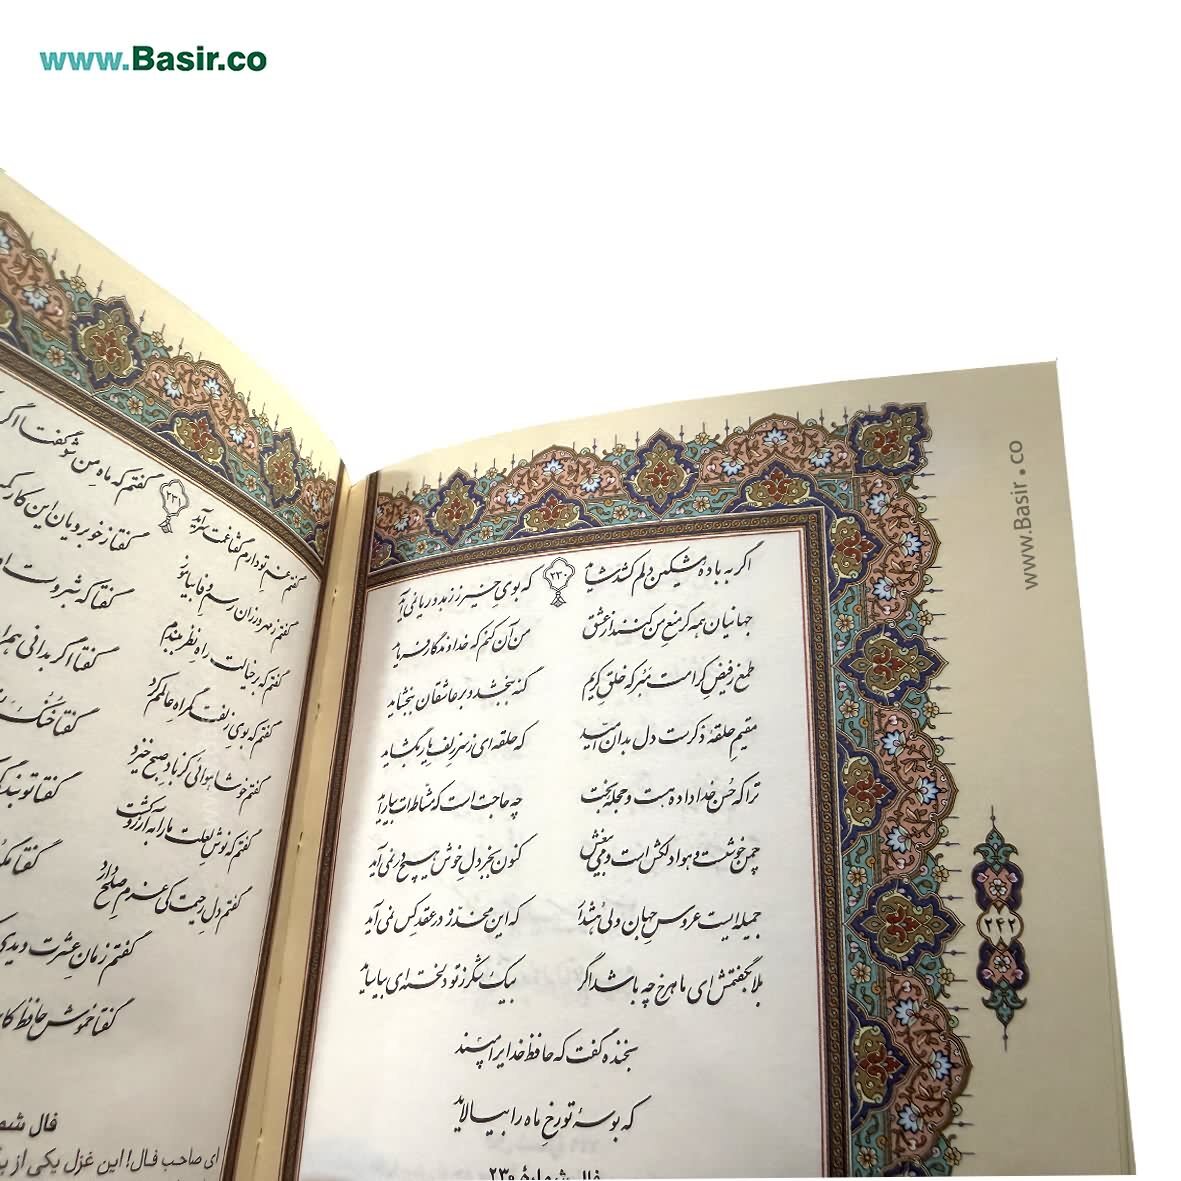 www.Basir.co
www.Basir.co
اگر به بادهٔ مشکین دلم کشد شاید ۲۳۰ که بوی خیر ز زهد ریا نمی آید
جهانیان همه گر منع من کنند از عشق من آن کنم که خداوندگار فرماید
طمع ز فیض کرامت مبر که خلق کریم گنه ببخشد و بر عاشقان ببخشاید
مقیم حلقهٔ ذکرست دل بدان امید که حلقه ای ز سر زلف یار بگشاید
ترا که حسن خداداده هست و حجلهٔ بخت چه حاجت است که مشاطه ات بیاراید
چمن خوشست و هوا دلکش است و می بیغش کنون بجز دل خوش هیچ در نمی آید
جمیله ایست عروس جهان ولی هشدار که این مخدره در عقد کس نمی آید
بلابه گفتمش ای ماهرخ چه باشد اگر بیک شکر ز تو دلخسته ای بیاساید
بخنده گفت که حافظ خدایرا مپسند
که بوسهٔ تو رخ ماه را بیالاید
فال شمارهٔ ۲۳۰
۲۴۲
گفتم غم تو دارم گفتا غمت سرآید ۲۳۱ گفتم که ماه من شو گفتا اگر
گفتم ز مهرورزان رسم وفا بیاموز گفتا ز خوبرویان این کار
گفتم که بر خیالت راه نظر ببندم گفتا که شبروست او
گفتم که بوی زلفت گمراه عالمم کرد گفتا اگر بدانی هم
گفتم خوشا هوائی کز باد صبح خیزد گفتا خنک
گفتم که نوش لعلت ما را به آرزو کشت گفتا تو بندگی
گفتم دل رحیمت کی عزم صلح دارد گفتا
گفتم زمان عشرت دیدی
گفتا خموش حافظ
فال
ای صاحب فال! این غزل یکی از